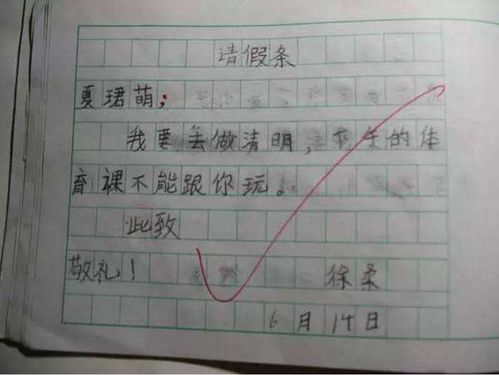 请假条
夏珺萌；
我要去做清明，今天的体
育裸不能跟你玩。
此致
敬礼！ 徐柔
6月14日